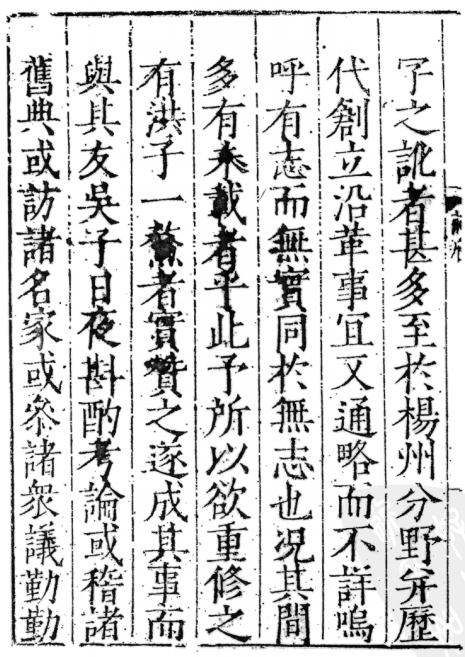 字之訛者甚多至於楊州分野并歷
代創立沿革事宜又通略而不詳嗚
呼有志而無實同於無志也况其間
多有未載者乎此予所以欲重修之
有洪子一鰲者實贊之遂成其事而
與其友吳子日夜斟酌考論或稽諸
舊典或訪諸名家或叅諸衆議勤勤